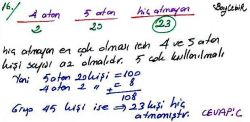 16/ 4 atan 5 atan hiç atmayan Baylebir
2 20 23
hiç atmayan en çok olması için 4 ve 5 atan
kişi sayısı az olmalıdır. 5 çok kullanılmalı
Yani 5 atan 20 kişi = 100
4 atan 2 " = 8
108
Grup 45 kişi ise ⇒ 23 kişi hiç
atmamıştır. CEVAP: C